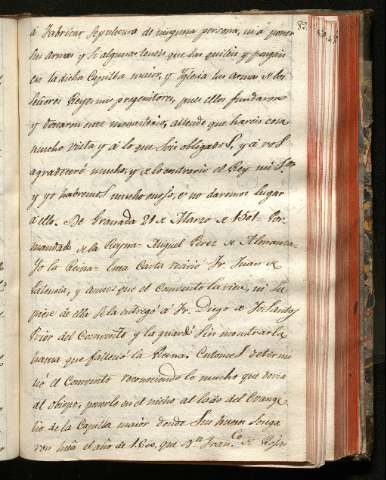 à fabricar sepultura de ninguna persona, ni à poner
sus armas y si algunas teneis que las quiteis y pongais
en la dicha Capilla maior, y Yglesia las Armas de los
Señores Reyes mis progenitores, pues ellos fundaron
y dotaron ese monasterio, allende que hareis con
mucho vista y á lo que sois obligado S. y á vos
agradeceré mucho, y de lo contrario el Rey mi S.or
y yo habremos mucho enojo, é no daremos lugar
à ello. De Granada 21 de Marzo de 1501. Por
mandado de la Reyna. Miguel Perez de Almazan.
Yo la Reina. Esta Carta recivió Fr. Juan de
Palencia, y antes que el Convento la viera, ni su
piese de ello se la entregó á Fr. Diego de
Prior del Convento y la guardó sin mostrarla
hasta que falleció la Reina. Entonces determi
nó el Convento reconociendo lo mucho que devia
al obispo, ponerlo en el nicho al lado del Evange
lio de la Capilla maior donde sus huesos
ron hasta el año de 1600, que D.n Fran.co de Rojas